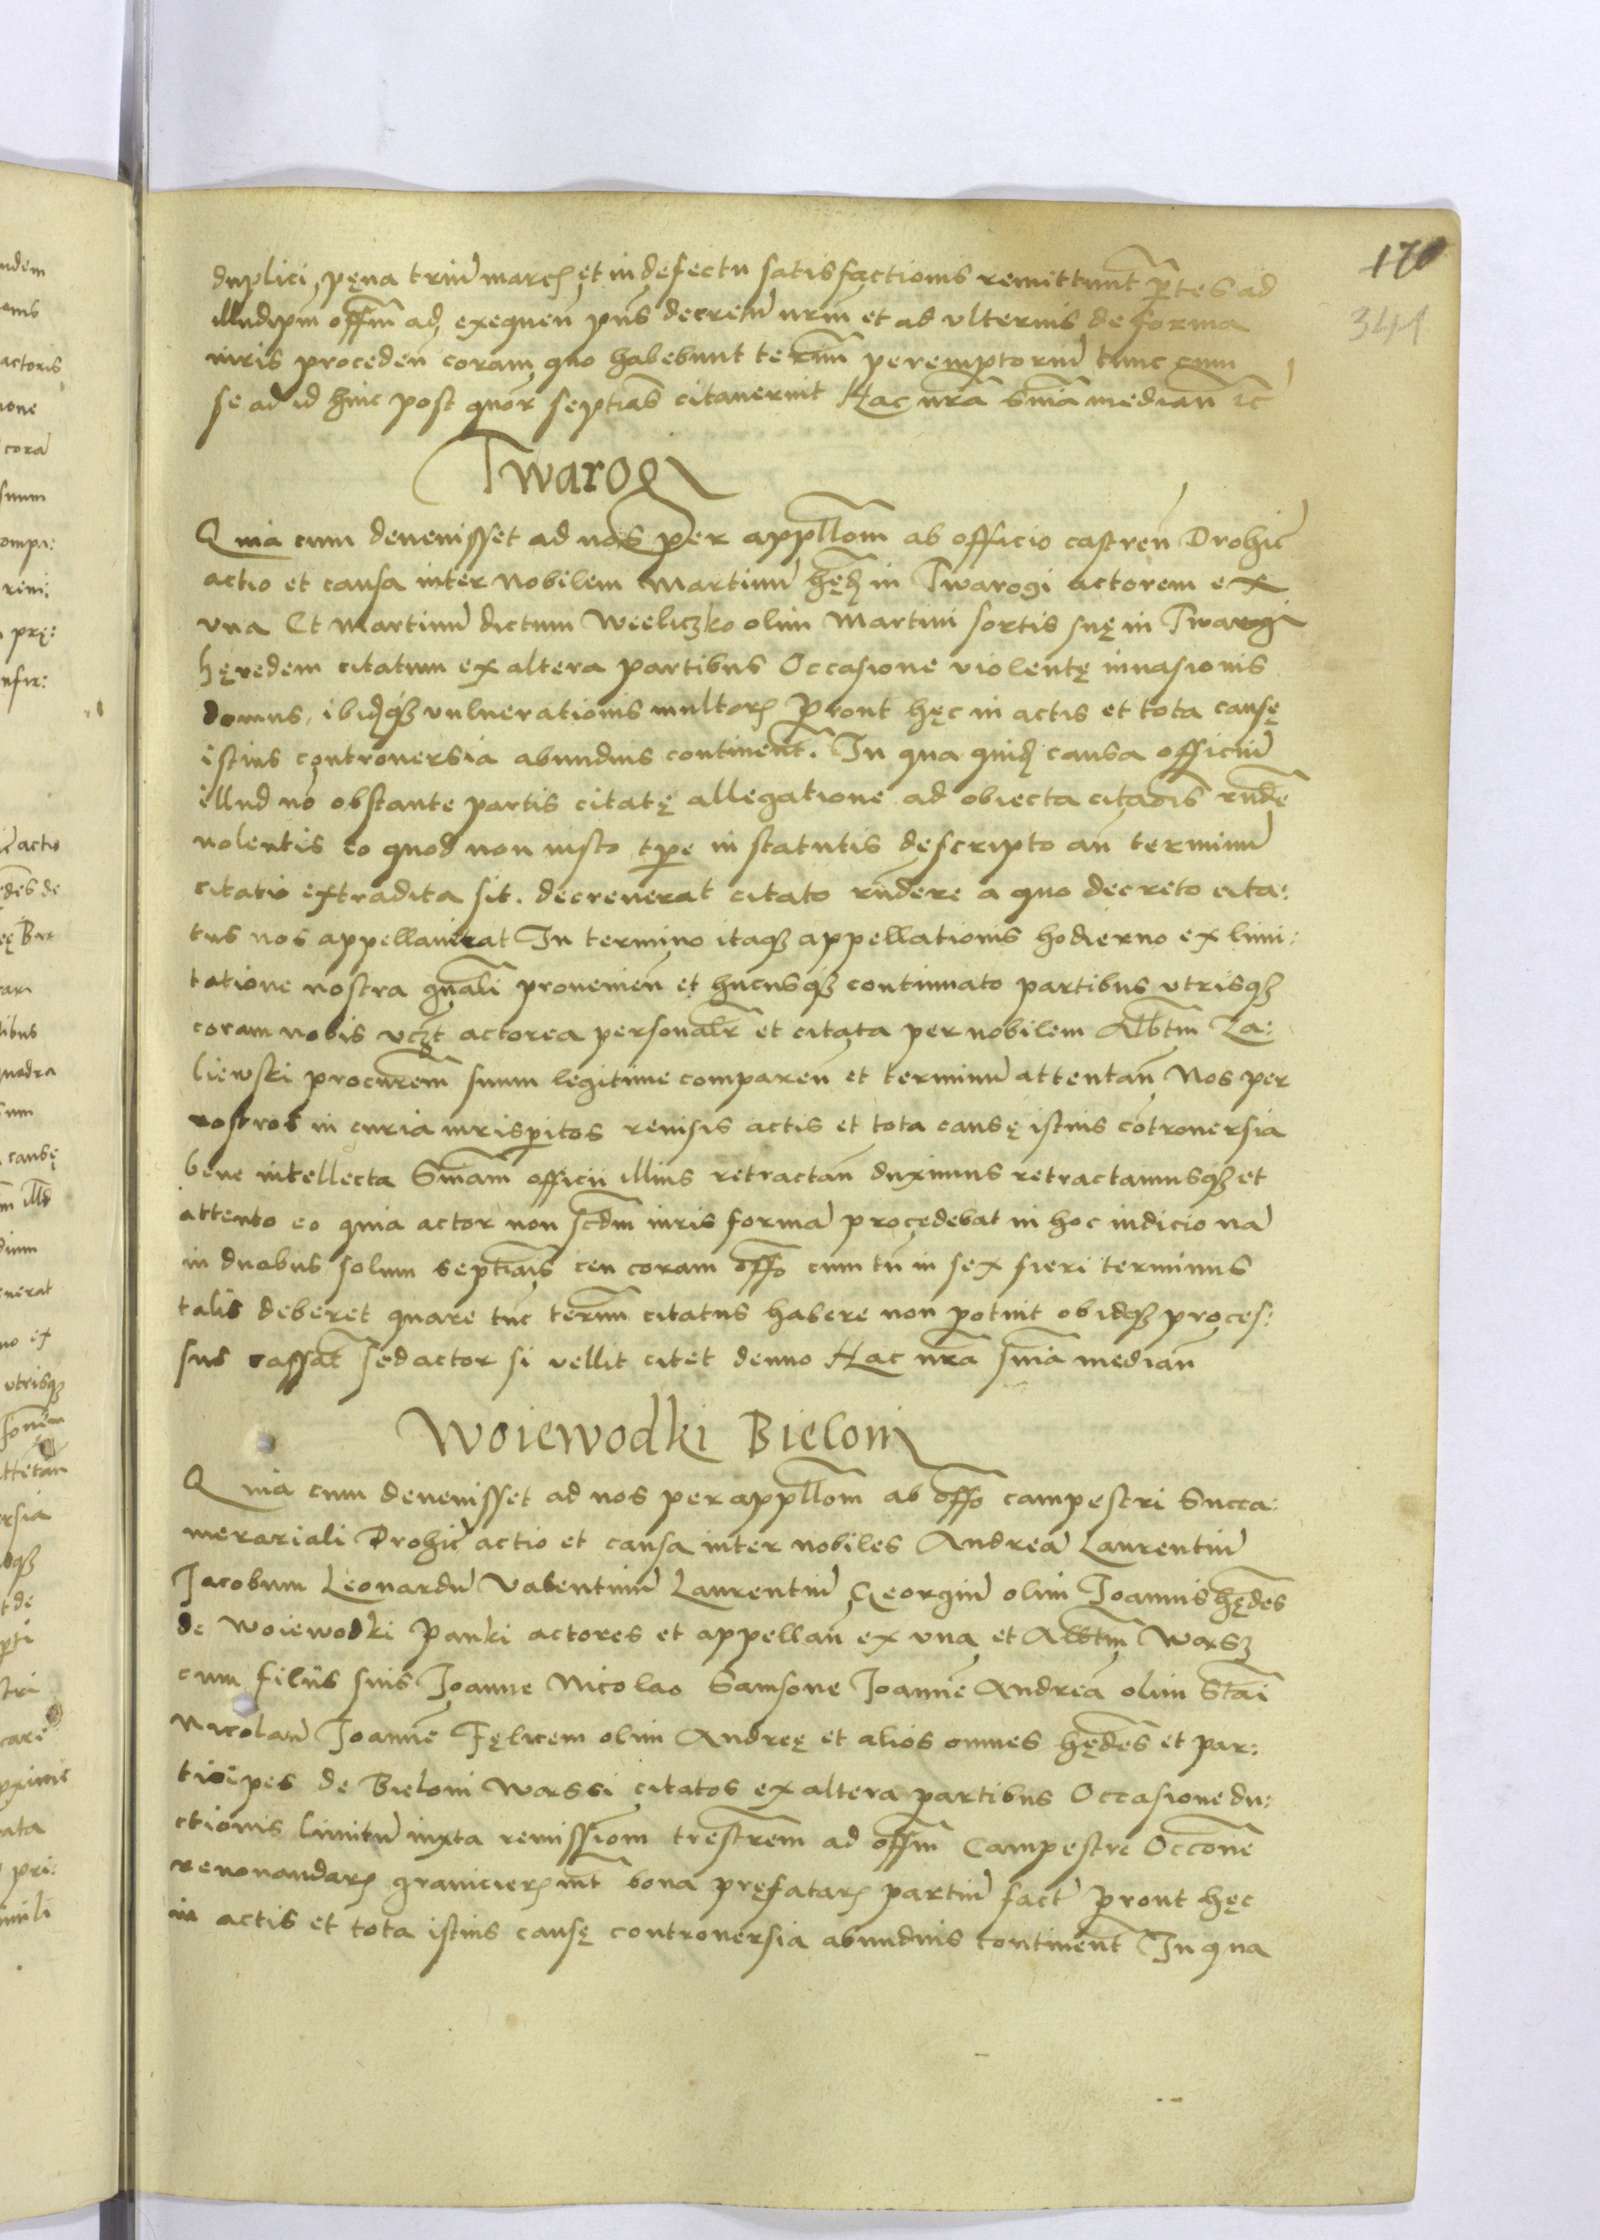 170
341
duplici pęna triũ marcꝝ et in defectu satisfactionis remittunt̃ p̃tes ad
illud ipm̃ offm̃ ad exequeñ pñs decretũ nrm̃ et ad vlterius de forma
iuris procedeñ coram quo habebunt term̃ peremptoriũ tunc cum
se ad id hinc post quõr septiãs citauerint Hac nrã sniã median̄ ic̃
Twarogi
Quia cum deuenisset ad nos per appllõm ab officio castreñ Drohic̃
actio et causa inter Nobilem Martinũ hęd̃ in Twarogi actorem ex
vna Et Martinũ dictum Wieliczko olim Martini sortis suę in Twarogi
hęredem citatum ex altera partibus Occasione violentę inuasionis
domus, ibidqꝫ vulnerationis multorꝝ Prout hęc in actis et tota causę
istius controuersia abundius continent̃. In qua quid̃ causa officiũ
illud nõ obstante partis citatę allegatione ad obiecta citãõis rñde
nolentis eo quod non iusto tp̃e in statutis descripto añ terminũ
citatio extradita sit. decreuerat citato rñdere a quo decreto cita:
tus nos appellauerat In termino itaqꝫ appellationis hodierno ex limi:
tatione nostra gñali proueniẽn et hucusqꝫ continuato partibus vtrisqꝫ
coram nobis vcꝫt actorea personalr̃ et citata per nobilem Albtm̃ Za:
liewski procurem̃ suum legitime compareñ et terminũ attentañ Nos per
nostros in curia iurisperitos reuisis actis et tota causę istius cõtrouersia
bene intellecta Sniam̃ officii illius retractañ duximus retractamusqꝫ et
attento eo quia actor non scdm̃ iuris formã procedebat in hoc iudicio nã
in duabus solum septiãis ceu coram offõ cum tñ in sex fieri terminus
talis deberet quare tũc term̃ citatus habere non potuit ob idqꝫ proces:
sus cassat̃ sed actor si vellit citet denuo Hac nrã sniã mediañ
Woiewodki Bieloni
Quia cum deuenisset ad nos per appllõm ab offõ campestri Succa:
merariali Drohic̃ actio et causa inter nobiles Andreã Laurentiũ
Jacobum Leonardũ Valentinũ Laurentiũ Georgiũ olim Joannis hędes̃
de Woiewodki Panki actores et appellañ ex vna et Albtm̃ Warsz
cum filiis suis Joanne Nicolao Samsone Joannẽ Andreã olim Stãi
Nicolaũ Joannẽ Fęlicem olim Andreę et alios omnes hędes̃ et par:
ticipes de Bieloni Warssi citatos ex altera partibus Occasione du:
ctionis limitũ iuxta remissiom̃ trestrem̃ ad offm̃ Campestre Occone̅
renouandarꝝ granicierꝝ int̃ bona pręfatarꝝ partiũ fact̃ prout hęc
in actis et tota istius causę controuersia abundius continent̃ In qua